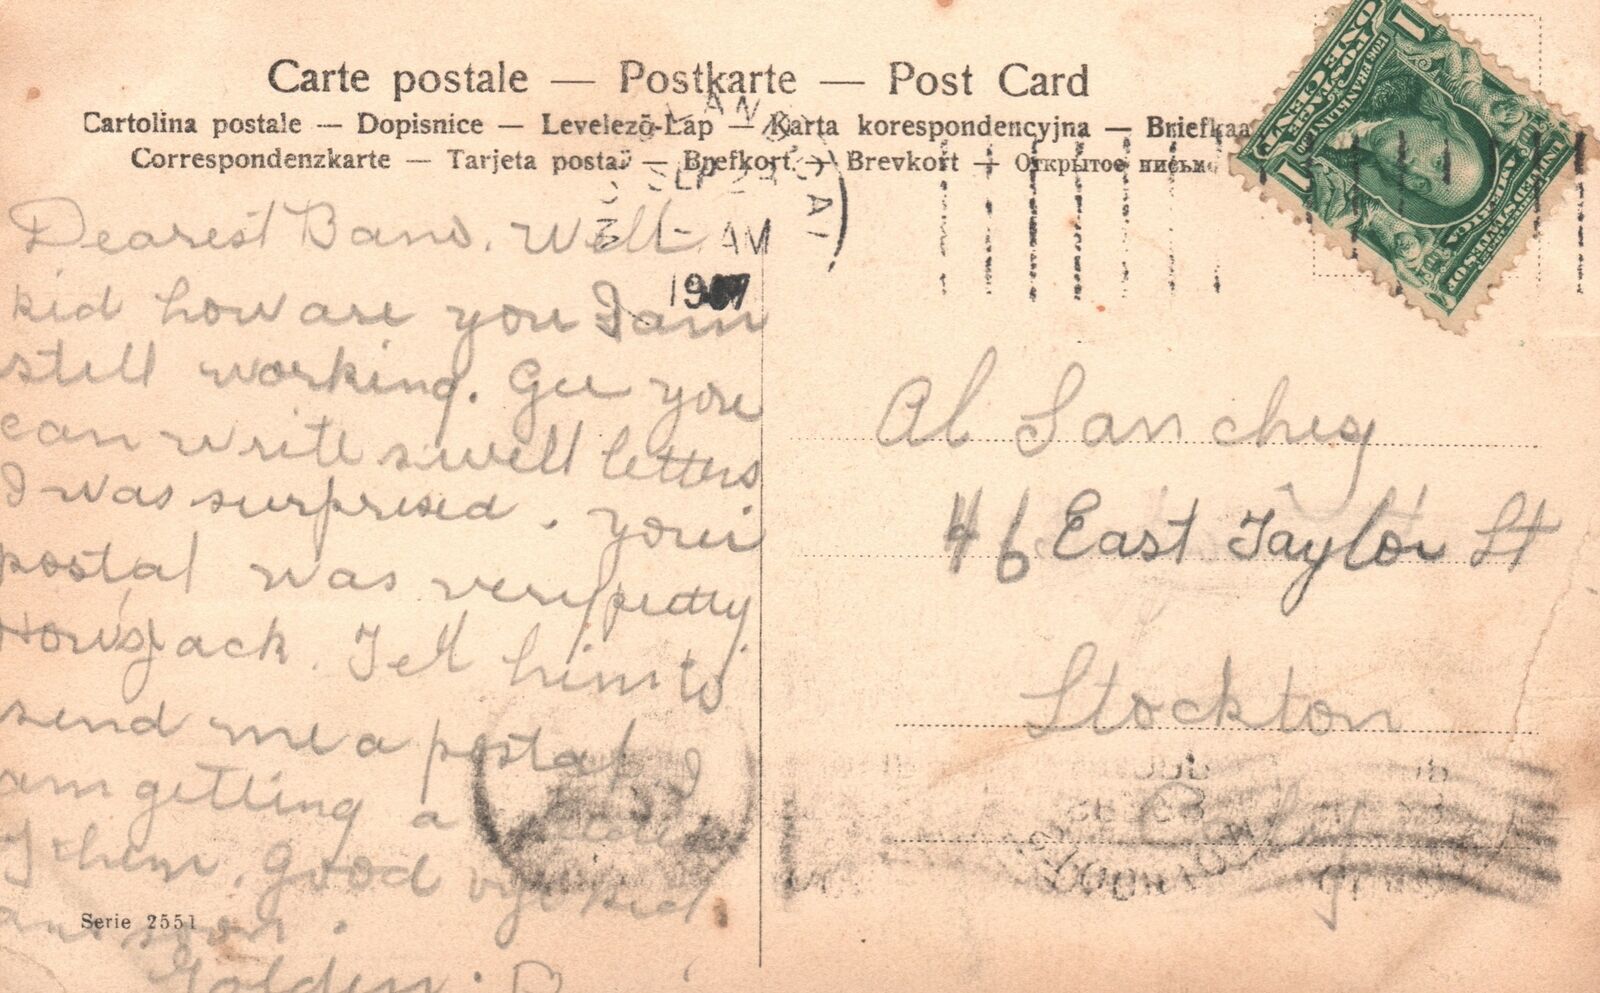 Carte postale — Postkarte — Post Card
Cartolina postale — Dopisnice — Levelező-Lap — Karta korespondencyjna — Briefkaa
Correspondenzkarte — Tarjeta postal — Brefkort — Brevkort — Открытое письмо
SEP
1 - AM
1907
CAL
ONE CENT
POSTAGE
FRANKLIN
UNITED STATES OF
AMERICA
1
1
Dearest Band. Well
kid how are you I am
still working. Gee you
can write swell letters
I was surprised. your
postal was very pretty
How's Jack. Tell him to
send me a postal I
am getting a
of them. good bye kid
ans soon.
Golden.
Al Sanchez
46 East Taylor St
Stockton
Serie 2551